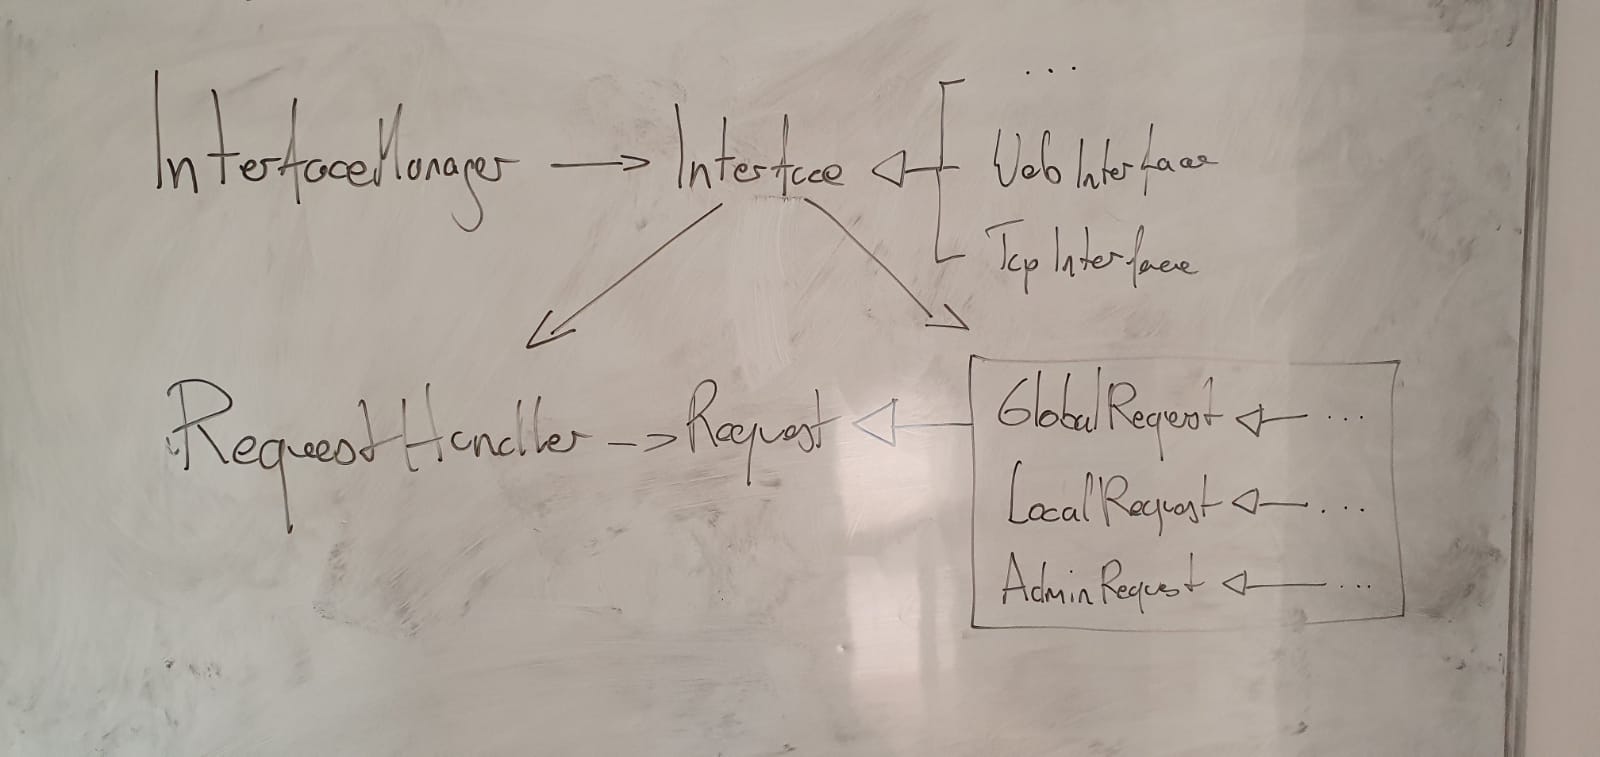 ...
InterfaceManager → Interface ◁ WebInterface
TcpInterface
RequestHandler -> Request ◁ GlobalReqest ◁ ...
LocalRequest ◁ ...
AdminRequest ◁ ...